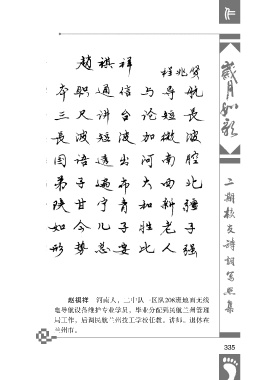 赵祺祥
程兆贤
本职通信与导航
三尺讲台论短长
长波短波加微波
国语透出河南腔
弟子遍布大西北
陕甘宁青和新疆
如今儿子胜老子
形势总要比人强
赵祺祥 河南人，二中队一区队208班地面无线
电导航设备维护专业学员。毕业分配到民航兰州管理
局工作，后调民航兰州技工学校任教。讲师。退休在
兰州市。
岁月如歌
二期校友诗词写照集
335